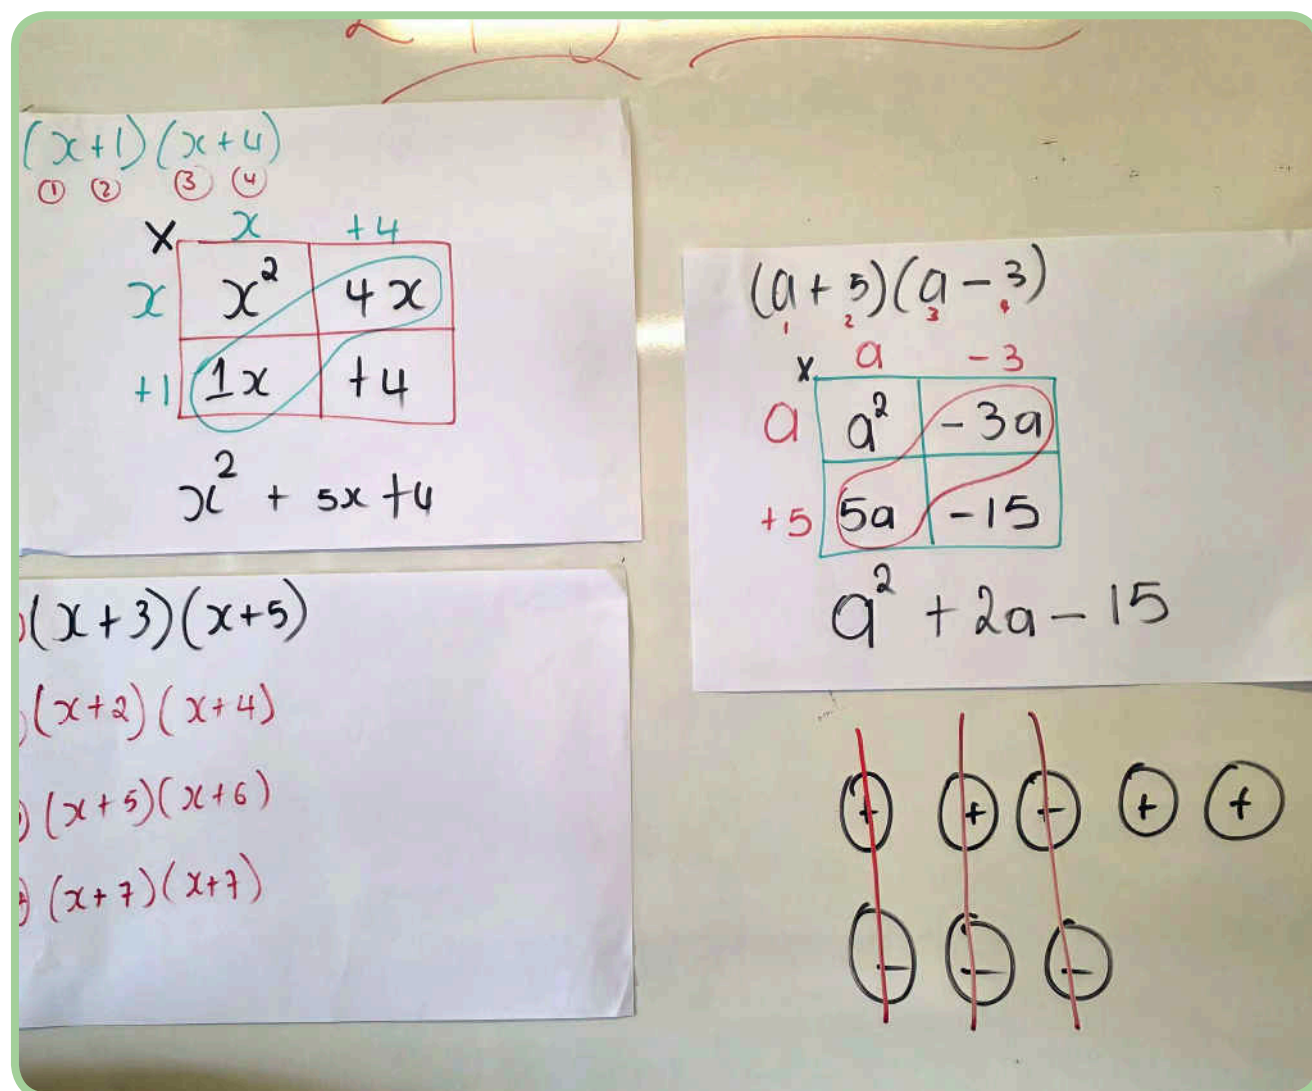 (x+1)(x+4)
① ② ③ ④
× x +4
x x² 4x
+1 1x +4
x² + 5x +4
)(x+3)(x+5)
)(x+2)(x+4)
)(x+5)(x+6)
)(x+7)(x+7)
(a+5)(a-3)
1 2 3 4
× a -3
a a² -3a
+5 5a -15
a² +2a - 15
+ + + + +
- - -